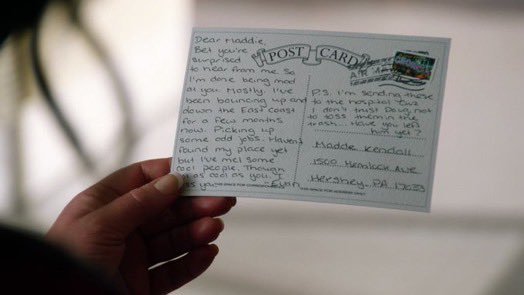 Dear Maddie,
Bet you're
surprised
to hear from me. So
I'm done being mad
at you. Mostly. I've
been bouncing up and
down the East coast
for a few months
now. Picking up
some odd jobs. Haven't
found my place yet
but I've met some
cool people. Though
as cool as you. I
you
POST CARD
P.S. I'm sending these
to the hospital cuz
I don't trust Doug not
to toss them in the
trash. Have you left
him yet?
Maddie Kendall
1500 Hemlock Ave
Hershey, PA 17033